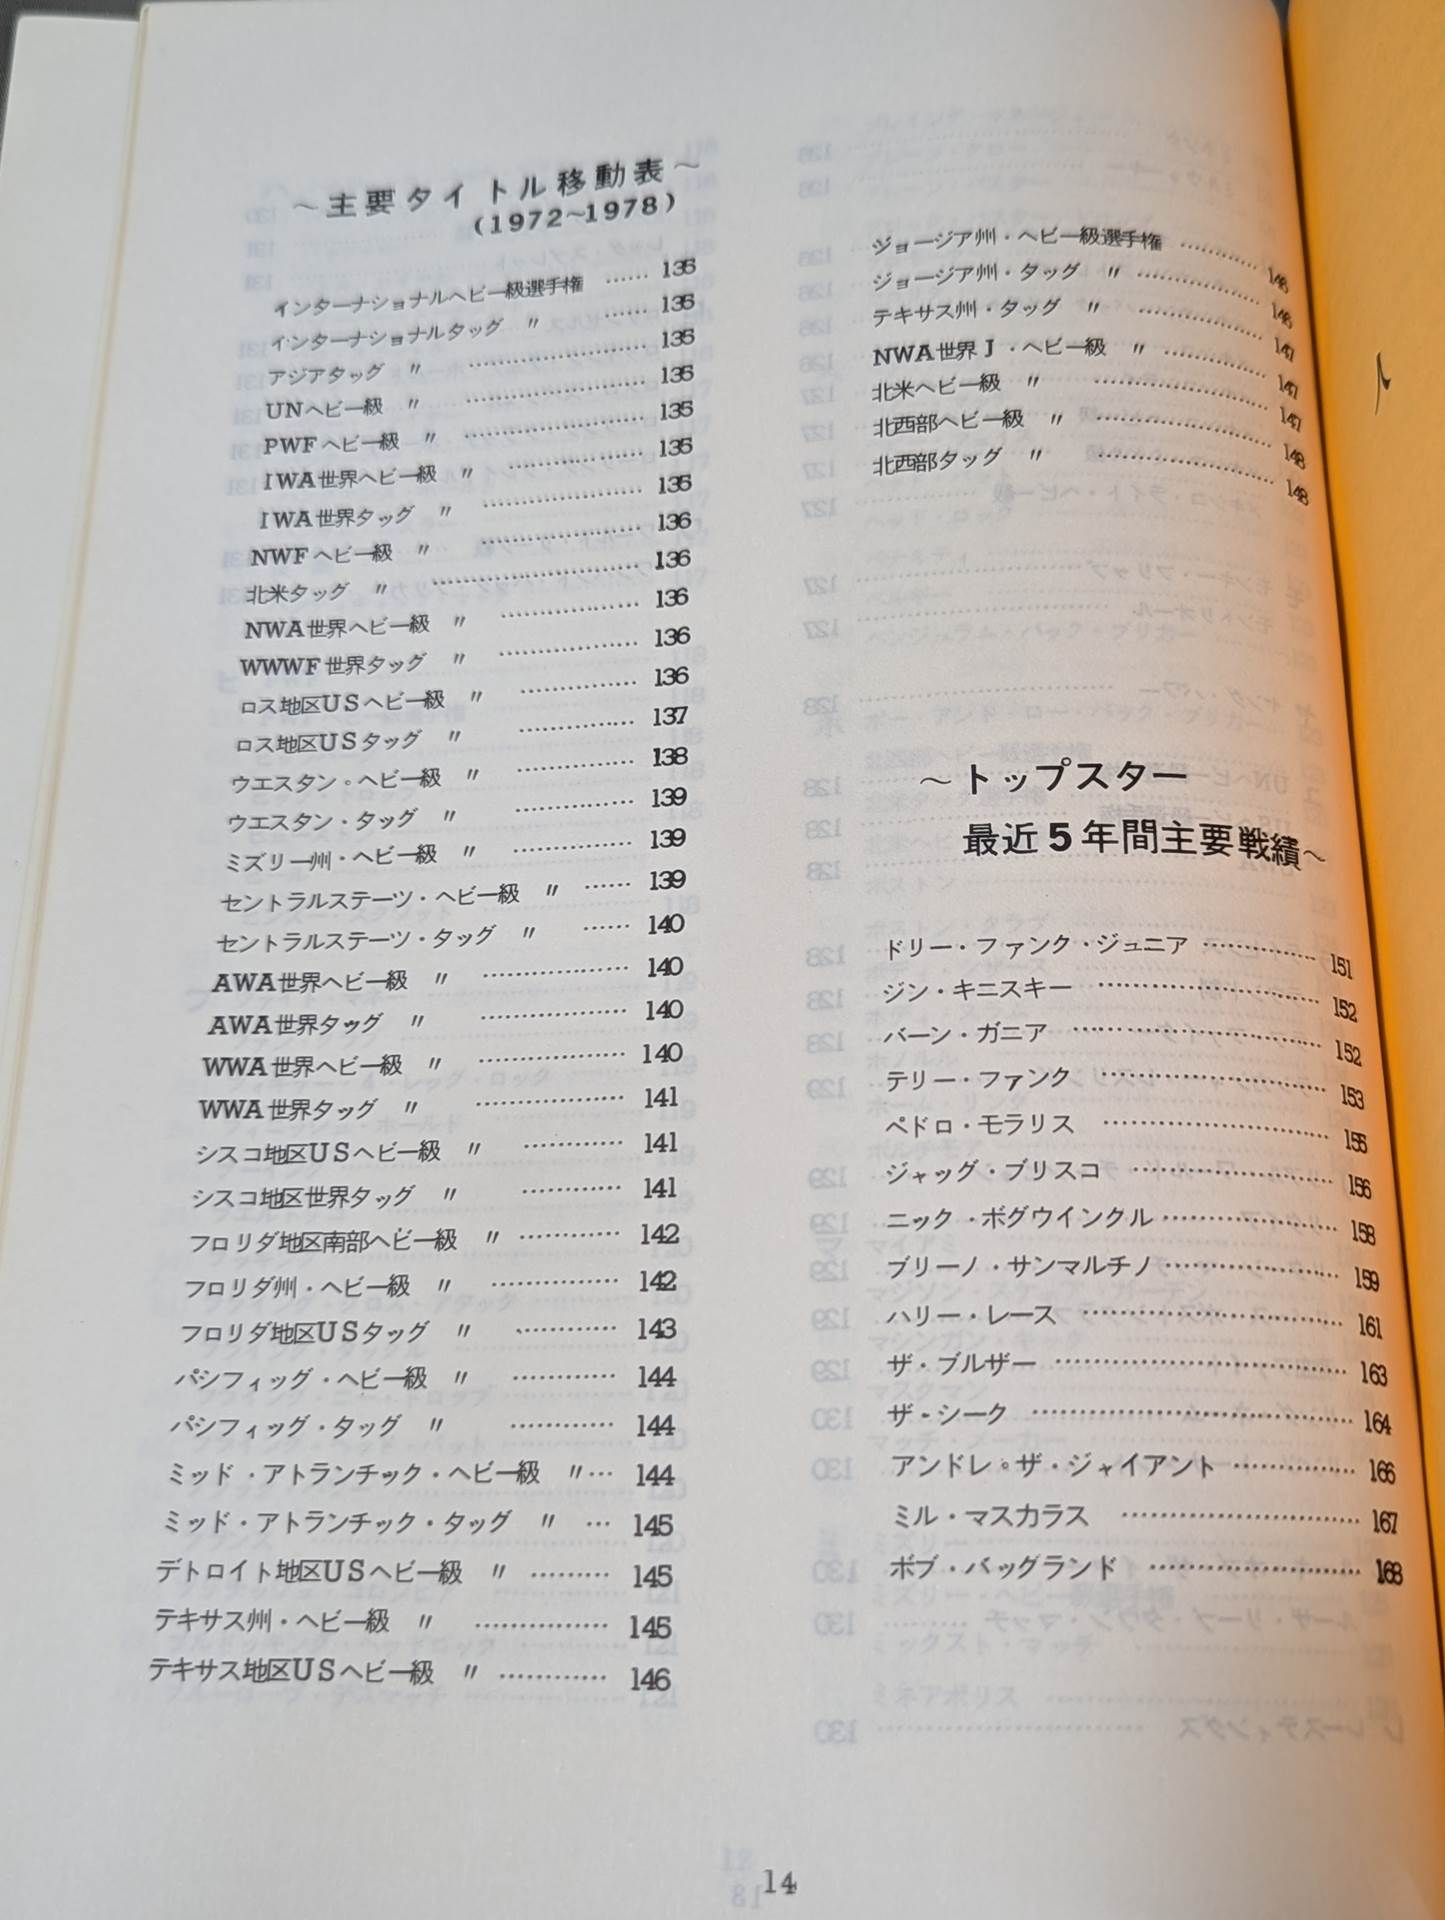 ～主要タイトル移動表～
(1972～1978)
インターナショナルヘビー級選手権 …… 135
インターナショナルタッグ 〃 …… 135
アジアタッグ 〃 …… 135
UNヘビー級 〃 …… 135
PWFヘビー級 〃 …… 135
IWA世界ヘビー級 〃 …… 135
IWA世界タッグ 〃 …… 135
NWFヘビー級 〃 …… 136
北米タッグ 〃 …… 136
NWA世界ヘビー級 〃 …… 136
WWWF世界タッグ 〃 …… 136
ロス地区USヘビー級 〃 …… 136
ロス地区USタッグ 〃 …… 137
ウエスタン・ヘビー級 〃 …… 138
ウエスタン・タッグ 〃 …… 139
ミズリー州・ヘビー級 〃 …… 139
セントラルステーツ・ヘビー級 〃 …… 139
セントラルステーツ・タッグ 〃 …… 140
AWA世界ヘビー級 〃 …… 140
AWA世界タッグ 〃 …… 140
WWA世界ヘビー級 〃 …… 140
WWA世界タッグ 〃 …… 141
シスコ地区USヘビー級 〃 …… 141
シスコ地区世界タッグ 〃 …… 141
フロリダ地区南部ヘビー級 〃 …… 142
フロリダ州・ヘビー級 〃 …… 142
フロリダ地区USタッグ 〃 …… 143
パシフィッグ・ヘビー級 〃 …… 144
パシフィッグ・タッグ 〃 …… 144
ミッド・アトランチック・ヘビー級 〃… 144
ミッド・アトランチック・タッグ 〃 … 145
デトロイト地区USヘビー級 〃 …… 145
テキサス州・ヘビー級 〃 …… 145
テキサス地区USヘビー級 〃 …… 146
ジョージア州・ヘビー級選手権 …… 146
ジョージア州・タッグ 〃 …… 146
テキサス州・タッグ 〃 …… 147
NWA世界J・ヘビー級 〃 …… 147
北米ヘビー級 〃 …… 147
北西部ヘビー級 〃 …… 148
北西部タッグ 〃 …… 148
～トップスター
最近5年間主要戦績～
ドリー・ファンク・ジュニア …… 151
ジン・キニスキー …… 152
バーン・ガニア …… 152
テリー・ファンク …… 153
ペドロ・モラリス …… 155
ジャッグ・ブリスコ …… 156
ニック・ボグウインクル …… 158
ブリーノ・サンマルチノ …… 159
ハリー・レース …… 161
ザ・ブルザー …… 163
ザ・シーク …… 164
アンドレ。ザ・ジャイアント …… 166
ミル・マスカラス …… 167
ボブ・バッグランド …… 168
14